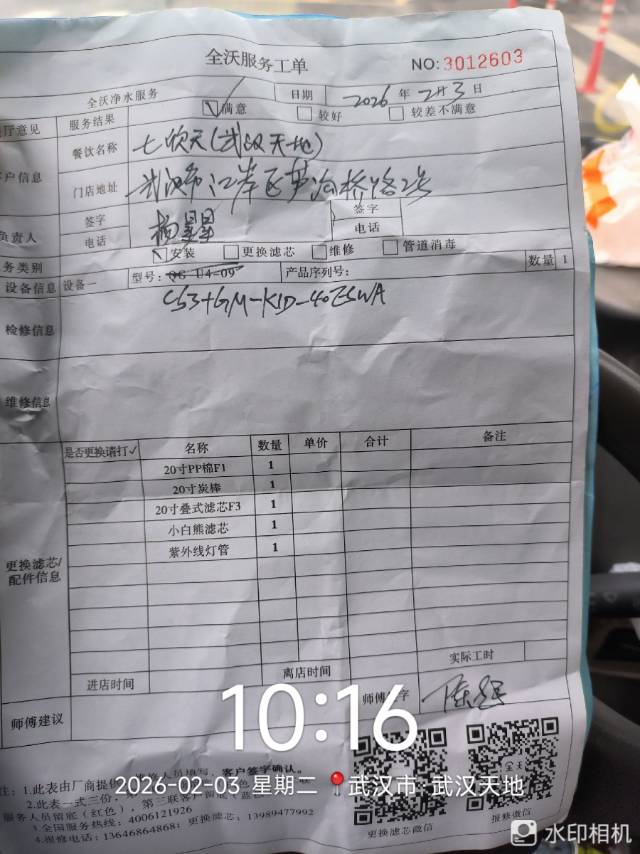 全沃服务工单
NO:3012603
全沃净水服务 日期 2026年2月3日
厅意见 服务结果 满意 较好 较差不满意
户信息 餐饮名称 七欣天(武汉天地)
门店地址 武汉市江岸区黄浦桥路2号
负责人 签字 杨星星 签字
电话 电话
务类别 安装 更换滤芯 维修 管道消毒
设备信息 设备一 型号: QG U4-09 产品序列号: 数量 1
CS3+GM-K1D-40ESWA
检修信息
维修信息
更换滤芯/配件信息 是否更换请打✓ 名称 数量 单价 合计 备注
20寸PP棉F1 1
20寸炭棒 1
20寸叠式滤芯F3 1
小白熊滤芯 1
紫外线灯管 1
实际工时
进店时间 离店时间
师傅建议 师傅 字
10:16
2026-02-03 星期二 武汉市·武汉天地
注: 1.此表由厂商提 人员填写, 客户签字确认。
2.此表一式三份, 第三联客户留底(蓝
服务人员留底(红色),
3.全国服务热线: 4006121926
4.报修电话: 13646864868; 更换滤芯: 13989477992
更换滤芯微信 报修微信
水印相机